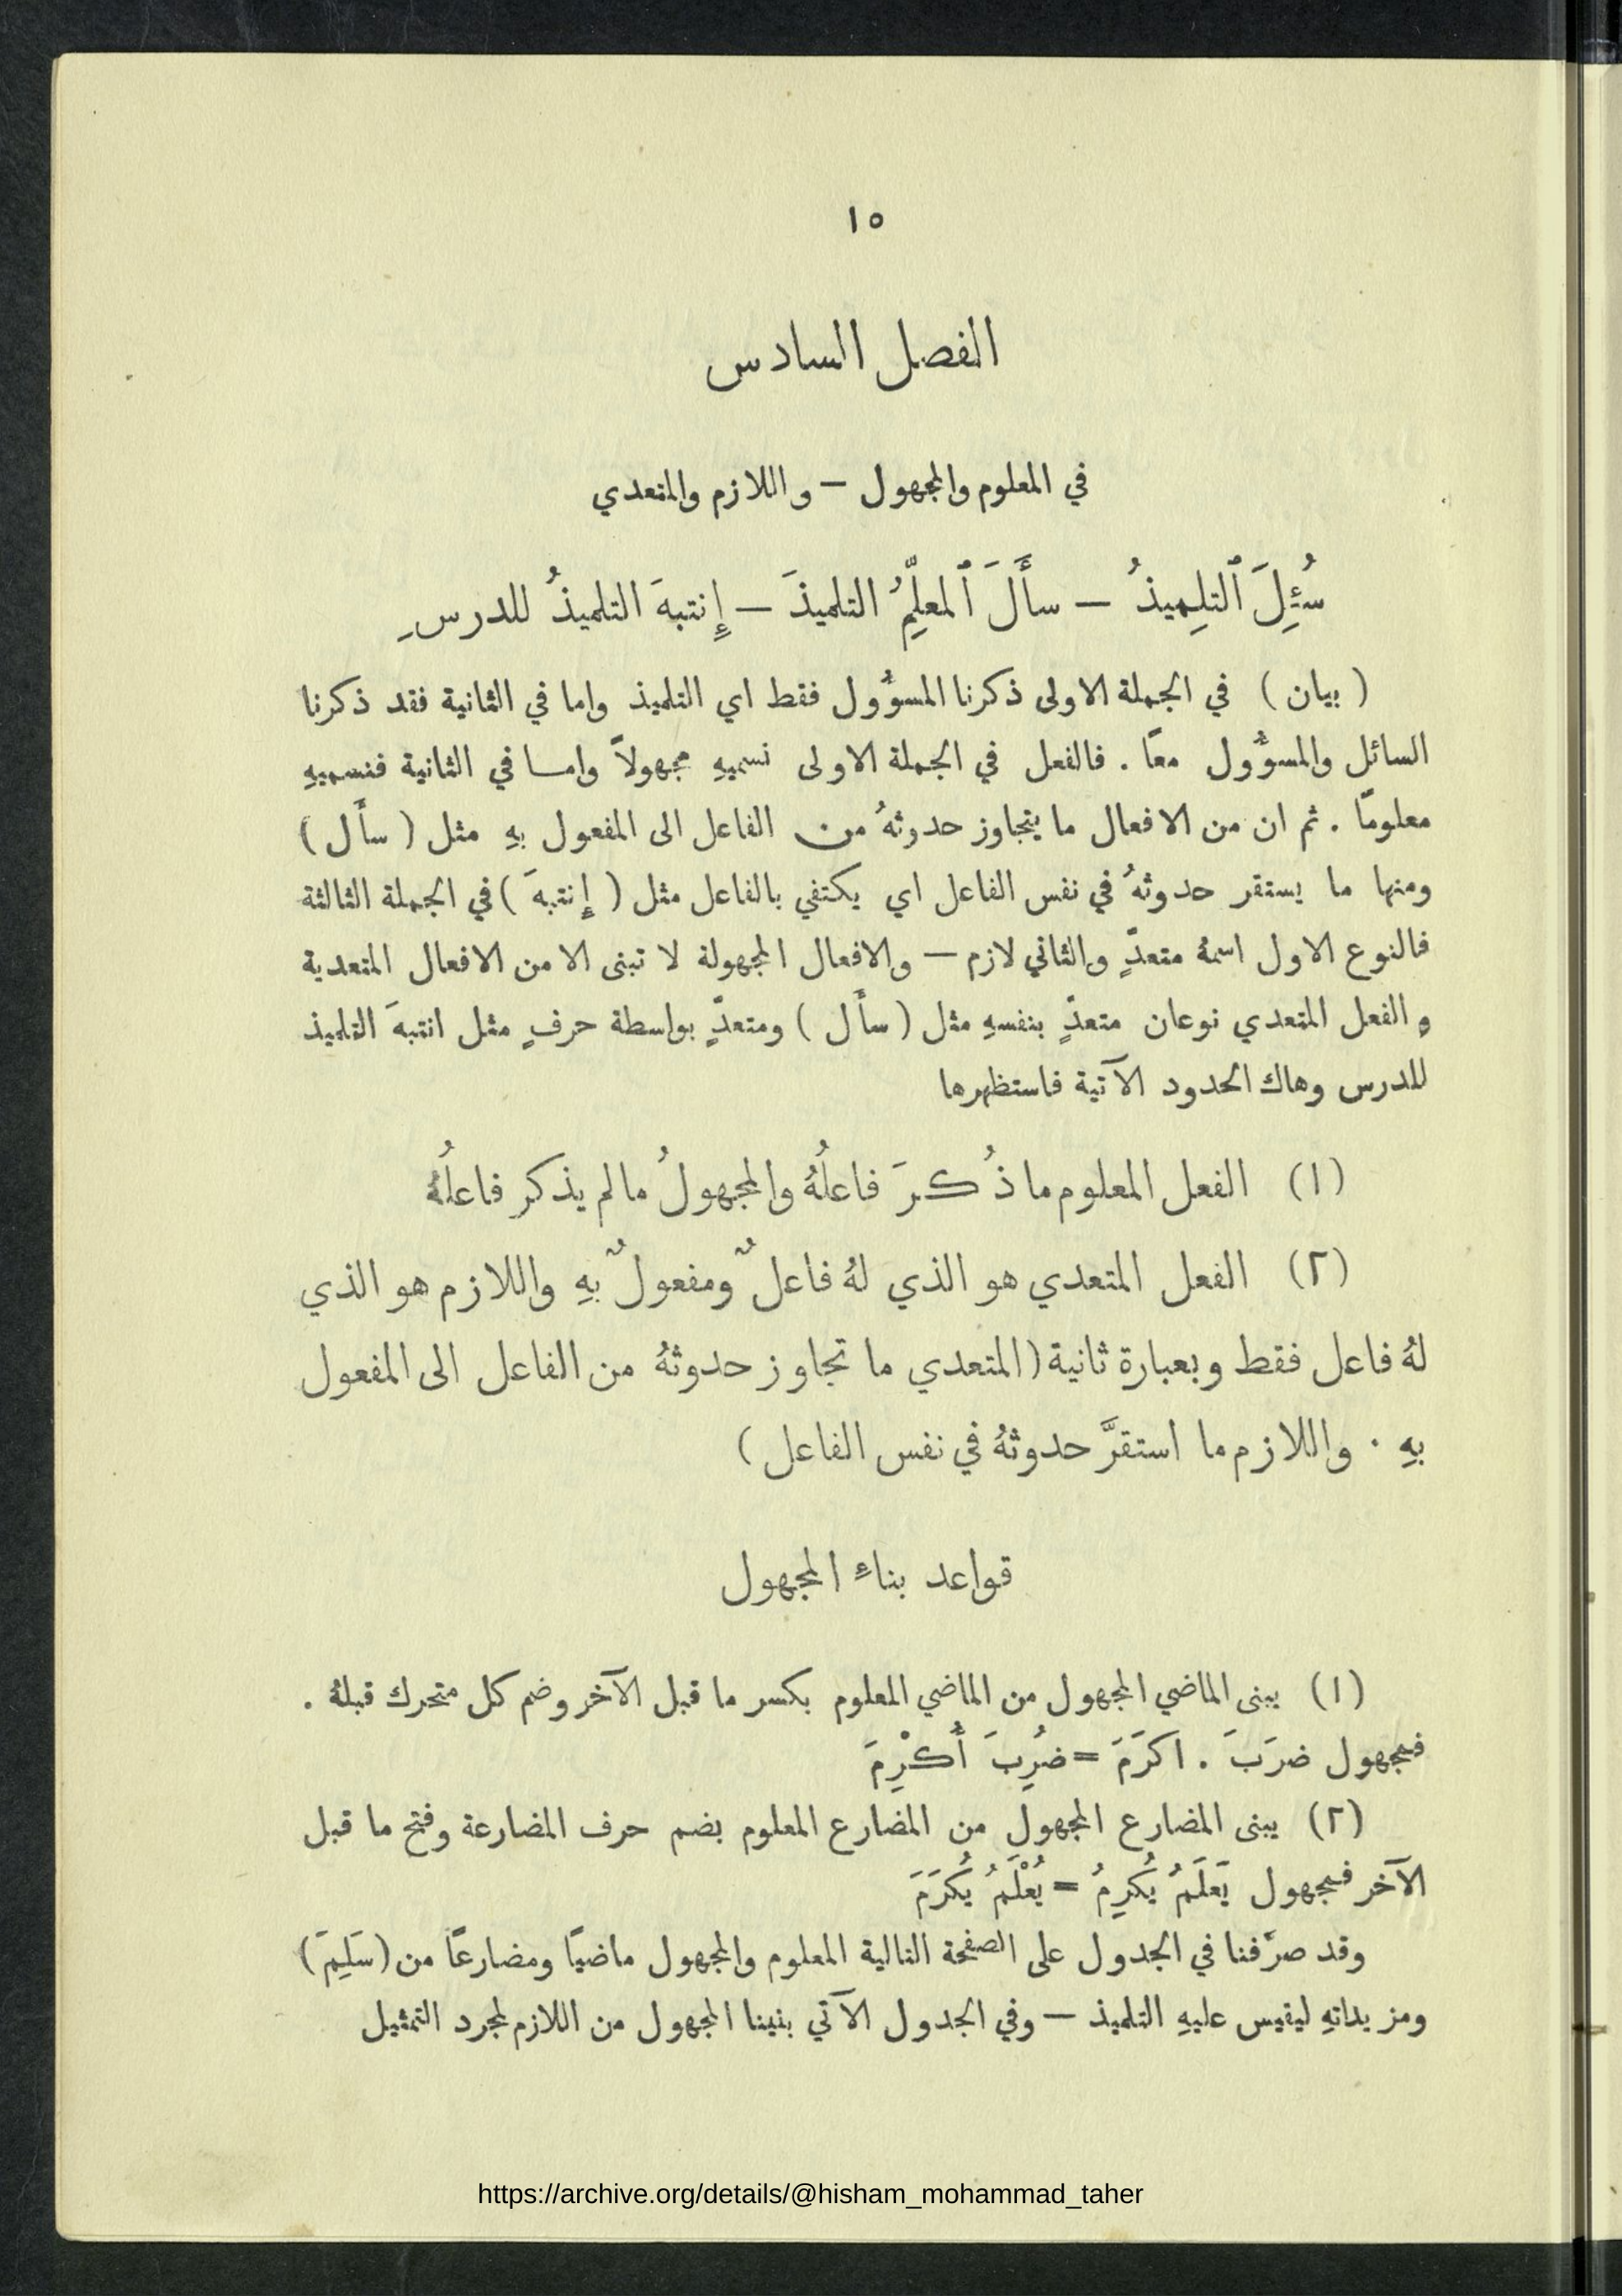 ١٥
الفصل السادس
في المعلوم والمجهول – واللازم والمتعدي
سُئِلَ ٱلتلِميذُ – سأَلَ ٱلمعلِّمُ التلميذَ – إِنتبهَ التلميذُ للدرسِ
( بيان ) في الجملة الاولى ذكرنا المسؤُول فقط اي التلميذ واما في الثانية فقد ذكرنا
السائل والمسؤُول معًا . فالفعل في الجملة الاولى نسميهِ مجهولاً وامـا في الثانية فنسميهِ
معلومًا . ثم ان من الافعال ما يتجاوز حدوثهُ من الفاعل الى المفعول بهِ مثل ( سأَل )
ومنها ما يستقر حدوثهُ في نفس الفاعل اي يكتفي بالفاعل مثل ( إِنتبهَ ) في الجملة الثالثة
فالنوع الاول اسمهُ متعدٍّ والثاني لازم – والافعال المجهولة لا تبنى الا من الافعال المتعدية
والفعل المتعدي نوعان متعدٍّ بنفسهِ مثل ( سأَل ) ومتعدٍّ بواسطة حرفٍ مثل انتبهَ التلميذ
للدرس وهاك الحدود الآتية فاستظهرها
(١) الفعل المعلوم ما ذُكرَ فاعلُهُ والمجهولُ ما لم يذكر فاعلُهُ
(٢) الفعل المتعدي هو الذي لهُ فاعلٌ ومفعولٌ بهِ واللازم هو الذي
لهُ فاعل فقط وبعبارة ثانية (المتعدي ما تجاوز حدوثهُ من الفاعل الى المفعول
بهِ . واللازم ما استقرَّ حدوثهُ في نفس الفاعل )
قواعد بناءِ المجهول
(١) يبنى الماضي المجهول من الماضي المعلوم بكسر ما قبل الآخر وضم كل متحرك قبلهُ .
فمجهول ضرَبَ . اكرَمَ = ضُرِبَ أُكْرِمَ
(٢) يبنى المضارع المجهول من المضارع المعلوم بضم حرف المضارعة وفتح ما قبل
الآخر فمجهول يَعلَمُ يُكرِمُ = يُعْلَمُ يُكرَمَ
وقد صرَّفنا في الجدول على الصفحة التالية المعلوم والمجهول ماضيًا ومضارعًا من (سَلِيَمَ)
ومزيداتهِ ليقيس عليهِ التلميذ – وفي الجدول الآتي بنينا المجهول من اللازم لمجرد التمثيل
https://archive.org/details/@hisham_mohammad_taher